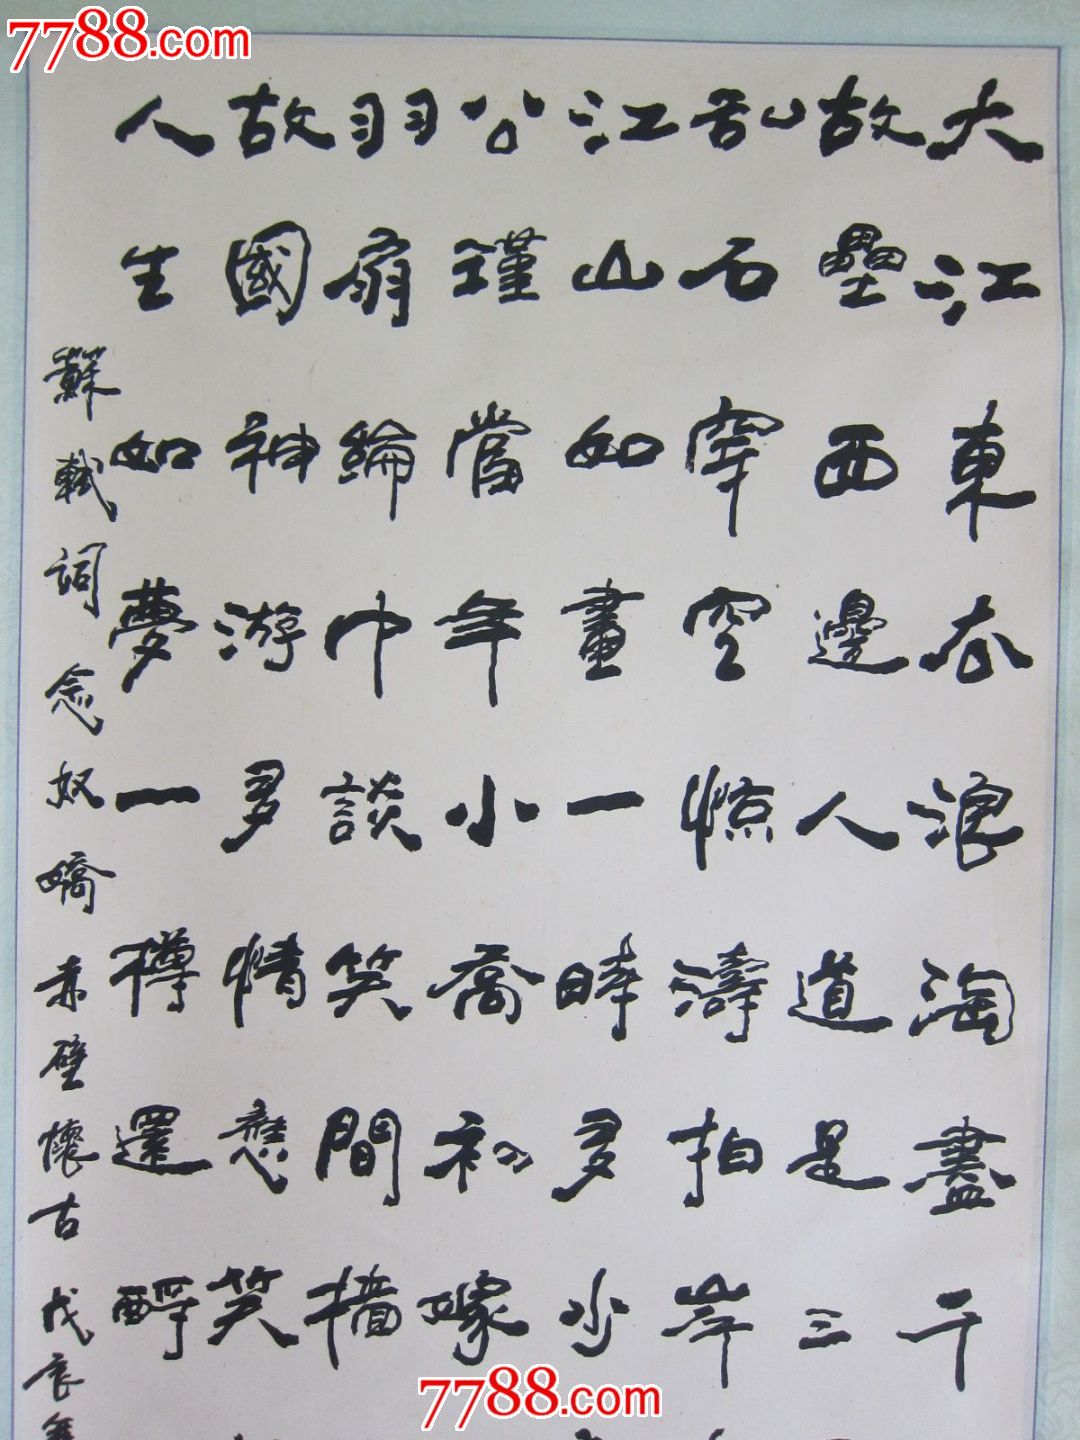 7788.com
7788.com
大江東去浪淘盡千
故壘西邊人道是三
乱石穿空惊濤拍岸
江山如畫一時多少
公瑾當年小喬初嫁
羽扇綸巾談笑間檣
故國神游多情應笑
人生如夢一樽還酹
蘇軾詞念奴嬌赤壁懷古戊辰年
7788.com